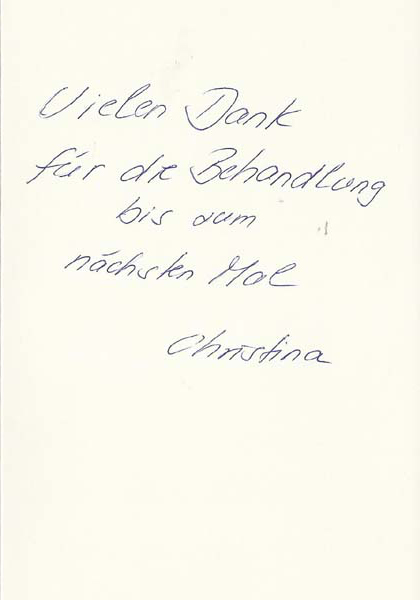 Vielen Dank
für die Behandlung
bis zum
nächsten Mal
Christina